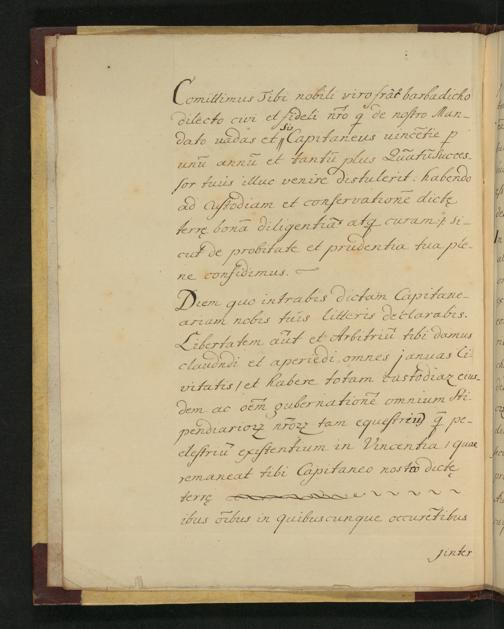 Comittimus Tibi nobili viro frat barbadicho
dilecto civi et fideli nr̃o q̃ de nostro Man-
dato vadas et sis Capitaneus vincẽtie p
unũ annũ et tantũ plus Quãtũ succes-
sor tuus illuc venire distulerit. habendo
ad custodiam et conservationẽ dictę
terrę bonã diligentiã atq curam, si-
cut de probitate et prudentia tua ple-
ne confidimus.
Diem quo intrabis dictam Capitane-
ariam nobis tuis litteris declarabis.
Libertatem aũt et Arbitriũ tibi damus
claudndi et aperiẽdi omnes januas Ci-
vitatis, et habere totam custodiaz eius-
dem ac oẽm gubernationẽ omnium sti-
pendiarioꝝ nr̃oꝝ tam equestriũ q̃ pe-
destriũ existentium in Vincentia, quae
remaneat tibi Capitaneo nostro dictę
terrę
ibus oĩbus in quibuscunque occurẽtibus